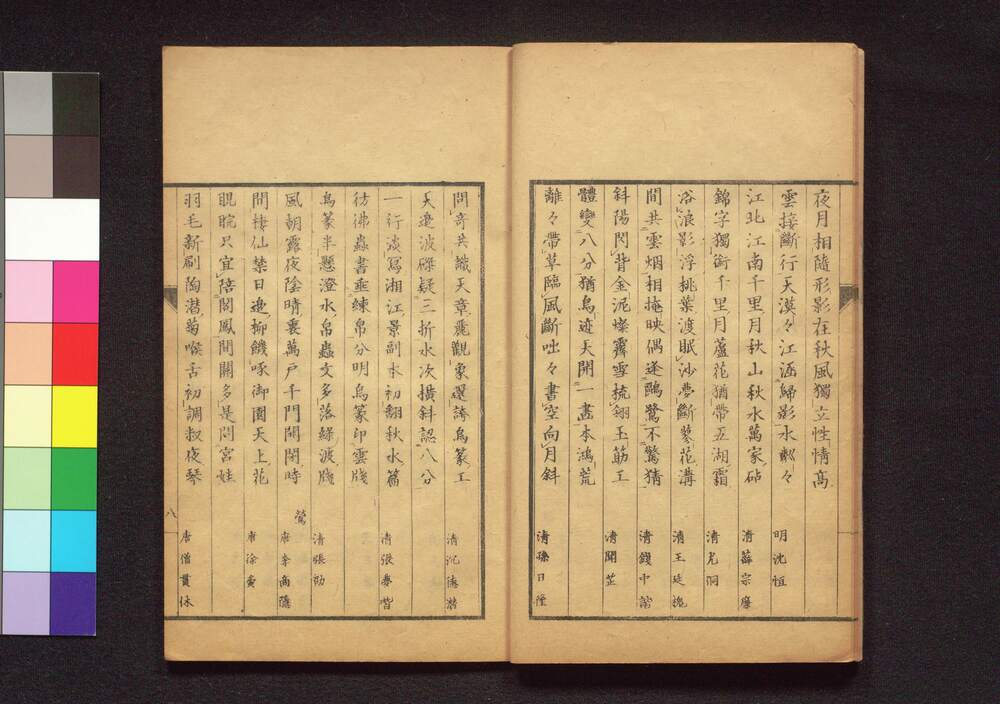 夜月相隨形影在秋風獨立性情高
雲接斷行天漠々江涵歸影水粼々 明沈恒
江北江南千里月秋山秋水萬家砧 清薛宗廉
錦字獨銜千里月蘆花猶帶五湖霜 清尤洞
浴浪影浮桃葉渡眠沙夢斷蓼花溝 清王廷
間共雲烟相掩映偶逢鷗鷺不驚猜 清錢中諧
斜陽閃背金泥燦霽雪梳翎玉筯工 清開芷
體變八分猶鳥迹天開一畫本鴻荒
離々帶草臨風斷咄々書空向月斜 清孫日
問奇共識天章麗觀象還誇鳥篆工 清沈德潛
天邊波磔疑三折水次橫斜認八分
一行淡寫湘江景副本初翻秋水篇 清張夢喈
彷彿蟲書垂練帛分明鳥篆印雲牋
鳥篆半懸澄水帛蟲文多落綠波牋 清張劭
鶯
風朝露夜陰晴裏萬戶千門開閉時 唐李商隱
間棲仙禁日邊柳饑啄御園天上花 唐徐夤
睍睆只宜陪閣鳳間關多是問宮娃
羽毛新刷陶潛菊喉舌初調叔夜琴 唐僧貫休
八